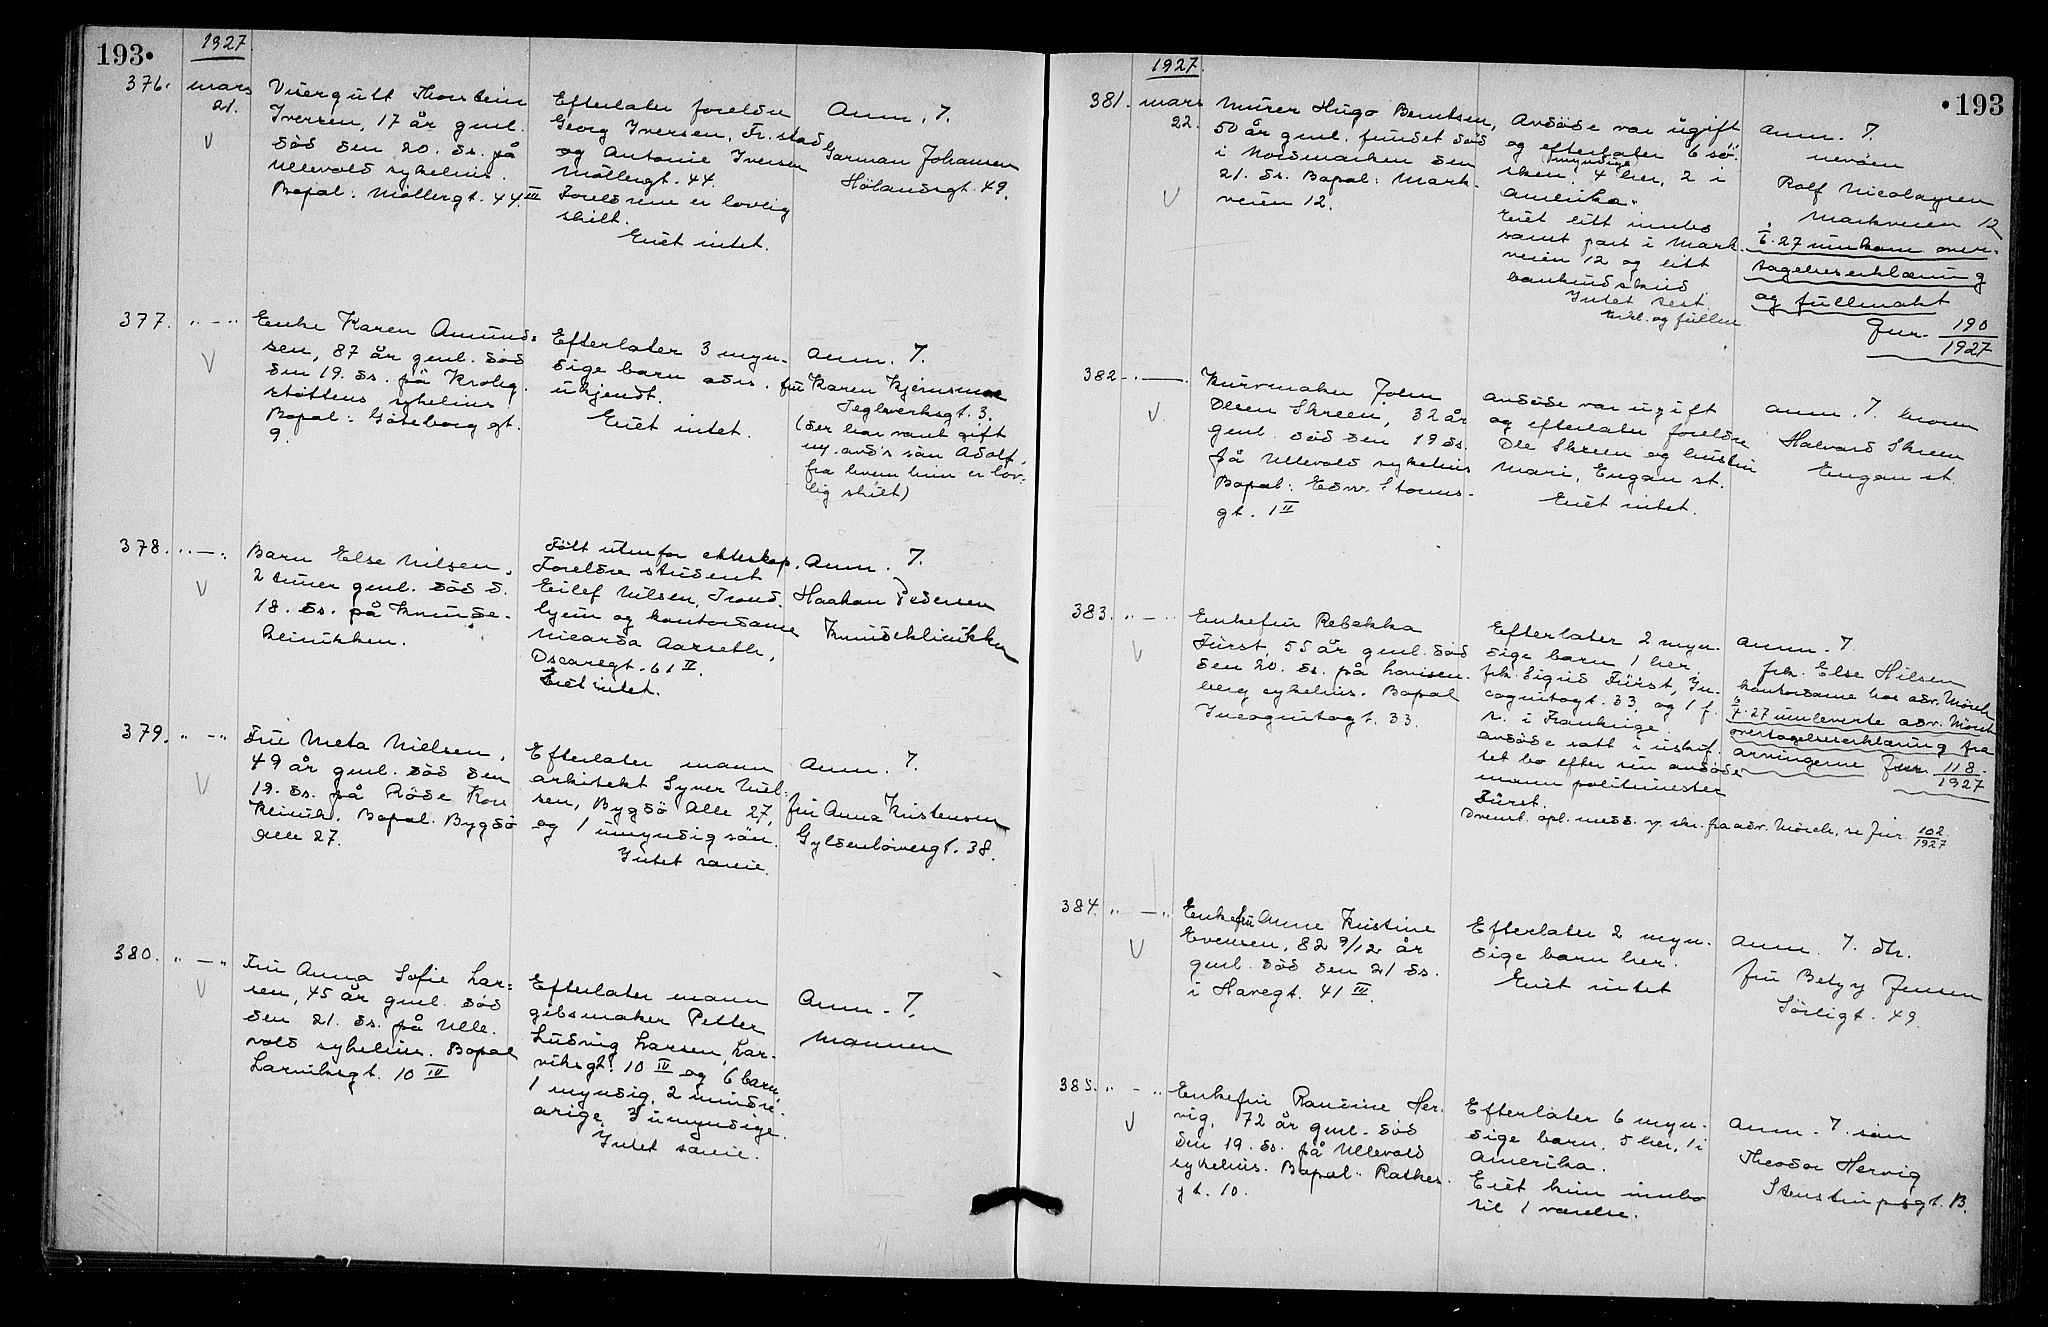 193.
1927.
376. mars 21.
Visergutt Thorstein
Iversen, 17 år gml.
död den 20. ds. på
Ullevold sykehus.
Bopæl: Möllergt. 44 III
Efterlater foreldre
Georg Iversen, Fr.stad
og Antonie Iversen
Möllergt. 44.
Foreldrene er lovlig
skilt.
Eiet intet.
Anm. 7.
Garman Johansen
Hölandsgt. 49.
377. " — "
Enke Karen Amund-
sen, 87 år gml. död
den 19. ds. på Krohg-
stöttens sykehus.
Bopæl: Göteborg gt.
9.
Efterlater 3 myn-
dige barn adrs.
ukjendt.
Eiet intet.
Anm. 7.
fru Karen Kjernsmoe
Teglverksgt. 3.
(der har vært gift
m. avd's sön Adolf,
fra hvem hun er lov-
lig skilt)
378. " — "
Barn Else Nilsen,
2 timer gml. död d.
18. ds. på Knuds-
klinikken.
Födt utenfor ekteskap.
Foreldre student
Eilef Nilsen, Trond-
hjem og kontordame
Nicarda Aarseth,
Oscarsgt. 61 II.
Eiet intet.
Anm. 7.
Haakon Pedersen
Knudsklinikken
379. " — "
Fru Meta Nielsen,
49 år gml. död den
19. ds. på Röde Kors
klinik. Bopæl: Bygdö
Alle 27.
Efterlater mann
arkitekt Syver Niel-
sen, Bygdö Alle 27,
og 1 umyndig sön.
Intet særeie.
Anm. 7.
fru Anna Kristensen
Gyldenlövesgt. 38.
380. " — "
Fru Anna Sofie Lar-
sen, 45 år gml. död
den 21. ds. på Ulle-
vold sykehus. Bopæl
Larviksgt. 10 IV
Efterlater mann
gibsmaker Petter
Ludvig Larsen, Lar-
viksgt. 10 IV og 6 barn,
1 myndig, 2 mindre-
årige, 3 umyndige.
Intet særeie.
Anm. 7.
Mannen
1927.
•193
381. mars 22.
Murer Hugo Berntsen,
50 år gml. fundet död
i Nordmarken den
21. ds. Bopæl: Mark-
veien 12.
Avdöde var ugift
og efterlater 6 sö-
myndige
sken, 4 her, 2 i
Amerika.
Eiet litt innbo
samt part i Mark-
veien 12 og litt
bankindskud
Intet test.
erkl. og fullm
Anm. 7.
nevöen
Rolf Nicolaysen
Markveien 12
6.27 innkom over-
tagelseserklæring
og fullmakt
Jnr. 190/1927
382 " — "
Kurvmaker John
Olsen Skreen, 32 år
gml. död den 19 ds.
på Ullevold sykehus
Bopæl: Edv. Storms-
gt. 1 II
Avdöde var ugift
og efterlater foreldre
Ole Skreen og hustru
Mari, Engan st.
Eiet intet.
Anm. 7. broren
Halvard Skreen
Engan st.
383. " — "
Enkefru Rebekka
Fürst, 55 år gml. död
den 20. ds. på Lovisen-
berg sykehus. Bopæl
Incognitogt. 33.
Efterlater 2 myn-
dige barn, 1 her,
frk. Sigrid Fürst, In-
cognitogt. 33, og 1 f.
n. i Frankrige.
Avdöde satt i uskif-
tet bo efter sin avdöde
mann politimester
Fürst.
Anm. 7.
frk. Else Nilsen
kontordame hos adv. Mörch
27 innleverte adv. Mörch
overtagelseserklæring fra
arvingerne Jnr. 118/1927
se Jnr. 102/1927
384. " — "
Enkefru Anne Kristine
Evensen, 82 9/12 år
gml. död den 21 ds.
i Havegt. 41 IV.
Efterlater 2 myn-
dige barn her.
Eiet intet
Anm. 7. dtr.
fru Betzy Jensen
Sörligt. 49.
385. " — "
Enkefru Randine Her-
vig, 72 år gml. död
den 19. ds. på Ullevold
sykehus. Bopæl: Rathkes-
gt. 10.
Efterlater 6 myn-
dige barn, 5 her, 1 i
Amerika.
Eiet kun innbo
til 1 værelse.
Anm. 7. sön
Theodor Hervig
Stenstrupsgt. B.